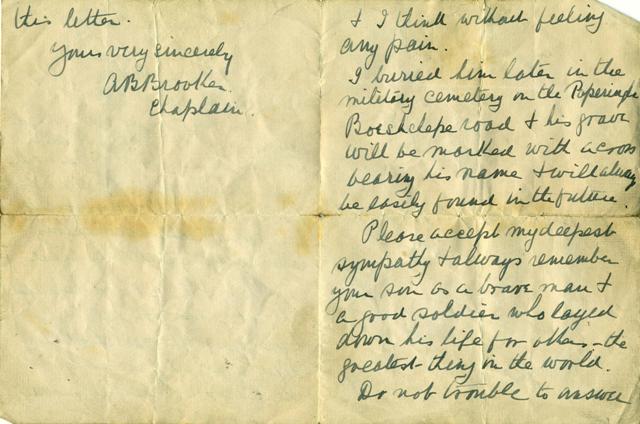 & I think without feeling
any pain.
I buried him later in the
military cemetery on the Poperinghe
Boeschepe road & his grave
will be marked with a cross
bearing his name & will always
be easily found in the future.
Please accept my deepest
sympathy & always remember
your son as a brave man &
a good soldier who layed
down his life for others – the
greatest thing in the world.
Do not trouble to answer
this letter.
Yours very sincerely
A B Brooker.
Chaplain.